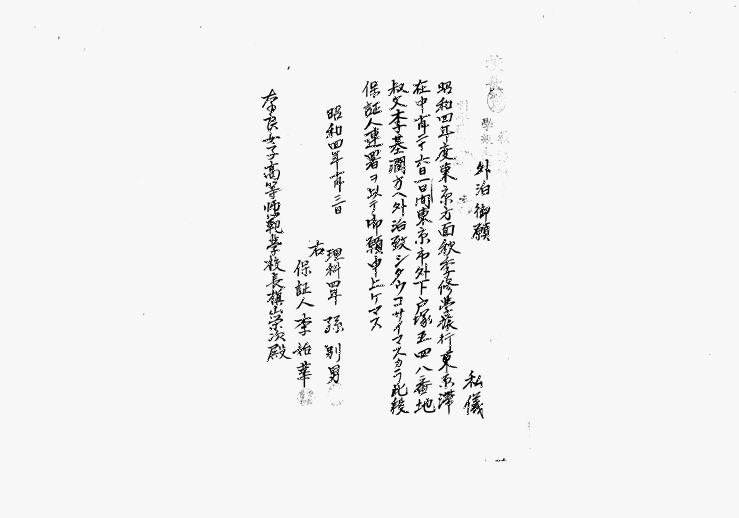 外泊御願
私儀
昭和四年度東京方面秋季修学旅行東京滞
在中十月二十六日一日間東京市外下戸塚五四八番地
叔父李基潤方ヘ外泊致シタウゴザイマスカラ此段
保証人連署ヲ以テ御願申上ゲマス
昭和四年十月三日
理科四年 孫别男
右
保証人 李始華
奈良女子高等師範学校長槇山栄次殿